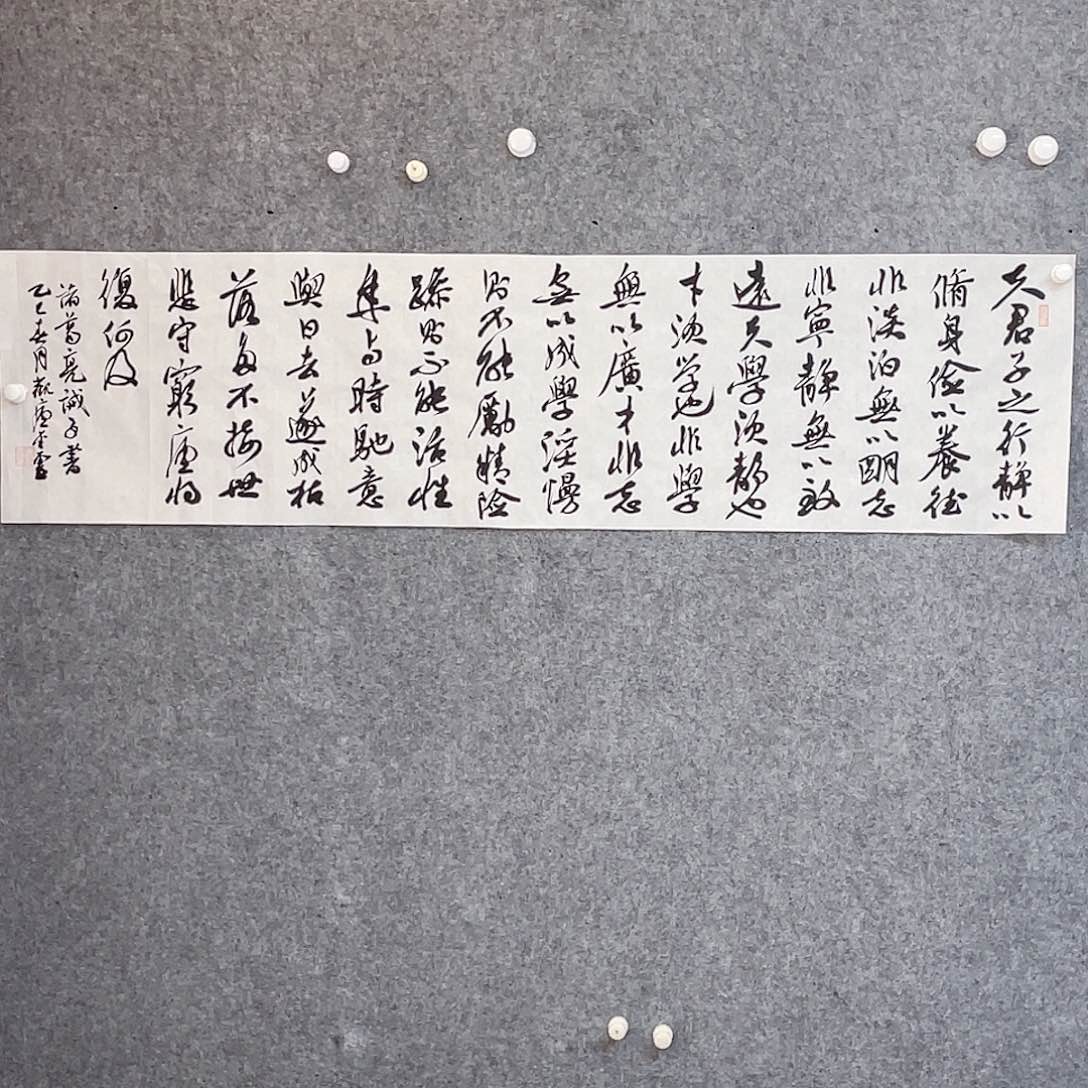 夫君子之行靜以
脩身儉以養德
非淡泊無以眀志
非寧靜無以致
遠夫學須靜也
才須學也非學
無以廣才非志
無以成學淫慢
則不能勵精險
躁則不能治性
年与時馳意
與日去遂成枯
落多不接世
悲守窮廬將
復何及
諸葛亮誡子書
乙巳春月